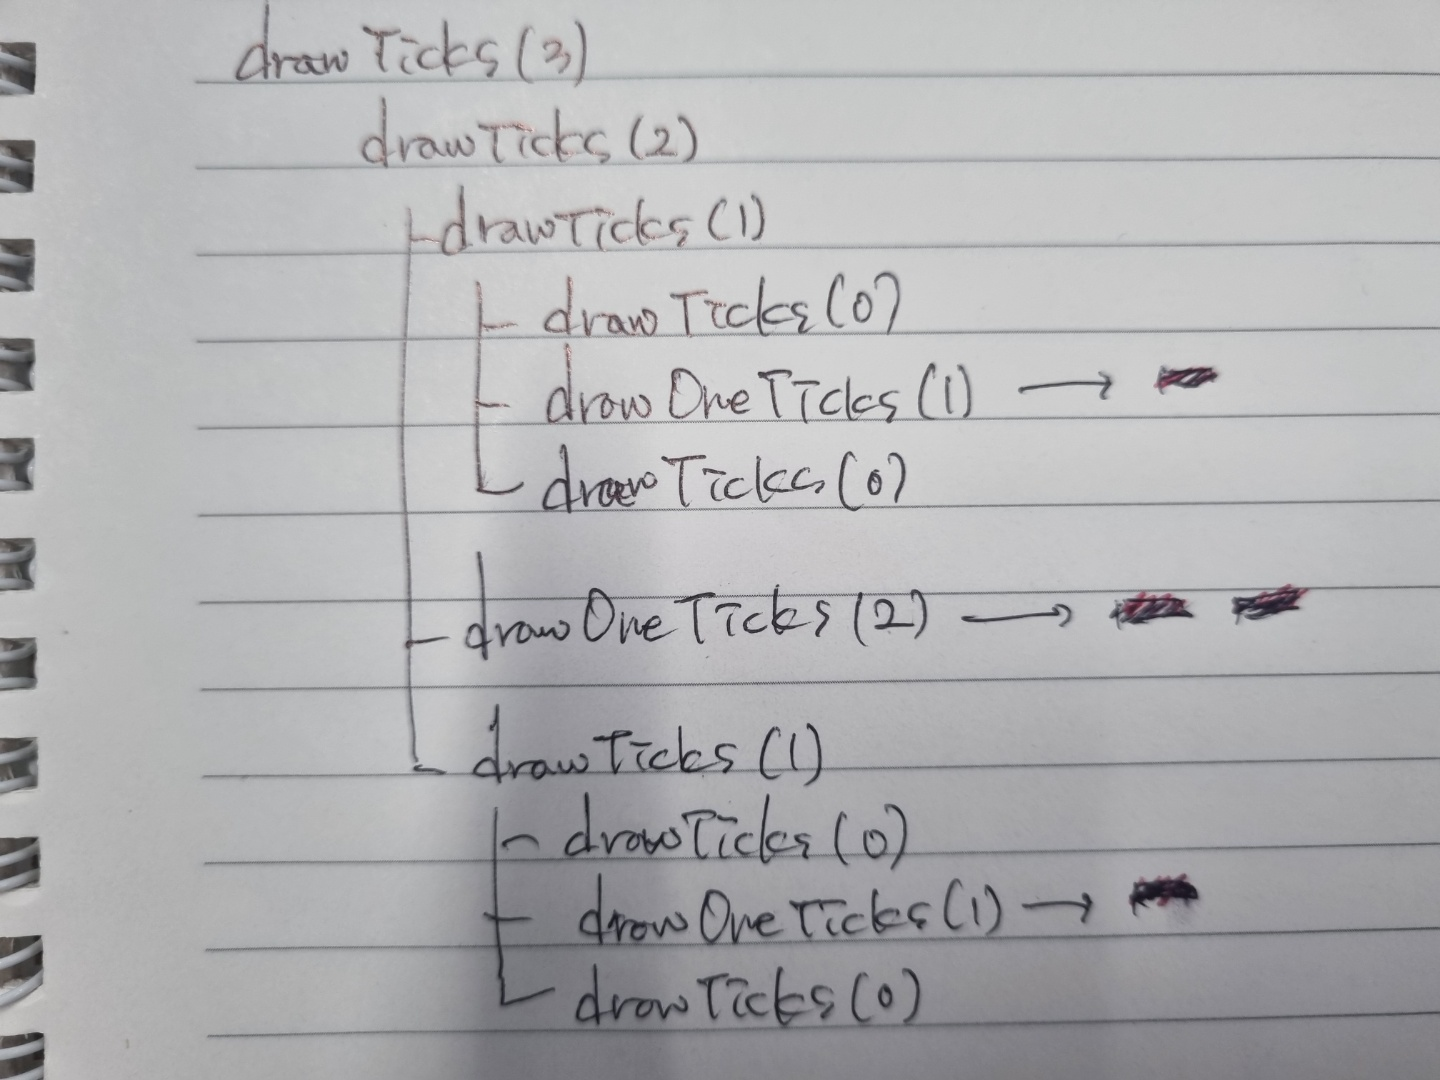 drawTicks(3)
drawTicks(2)
drawTicks(1)
drawTicks(0)
drawOneTicks(1) →
drawTicks(0)
drawOneTicks(2) →
drawTicks(1)
drawTicks(0)
drawOneTicks(1) →
drawTicks(0)